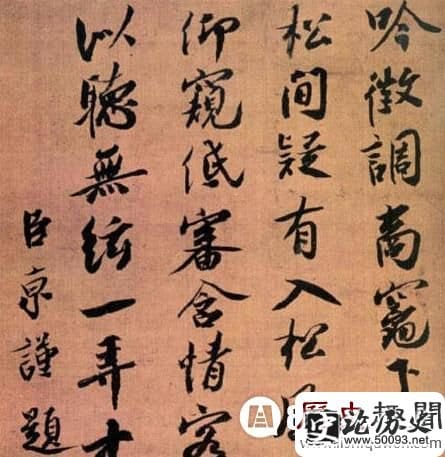 吟徵調商竈下
松間疑有入松風
仰窺低審含情客
以聽無絃一弄
臣京謹題
www.50093.net